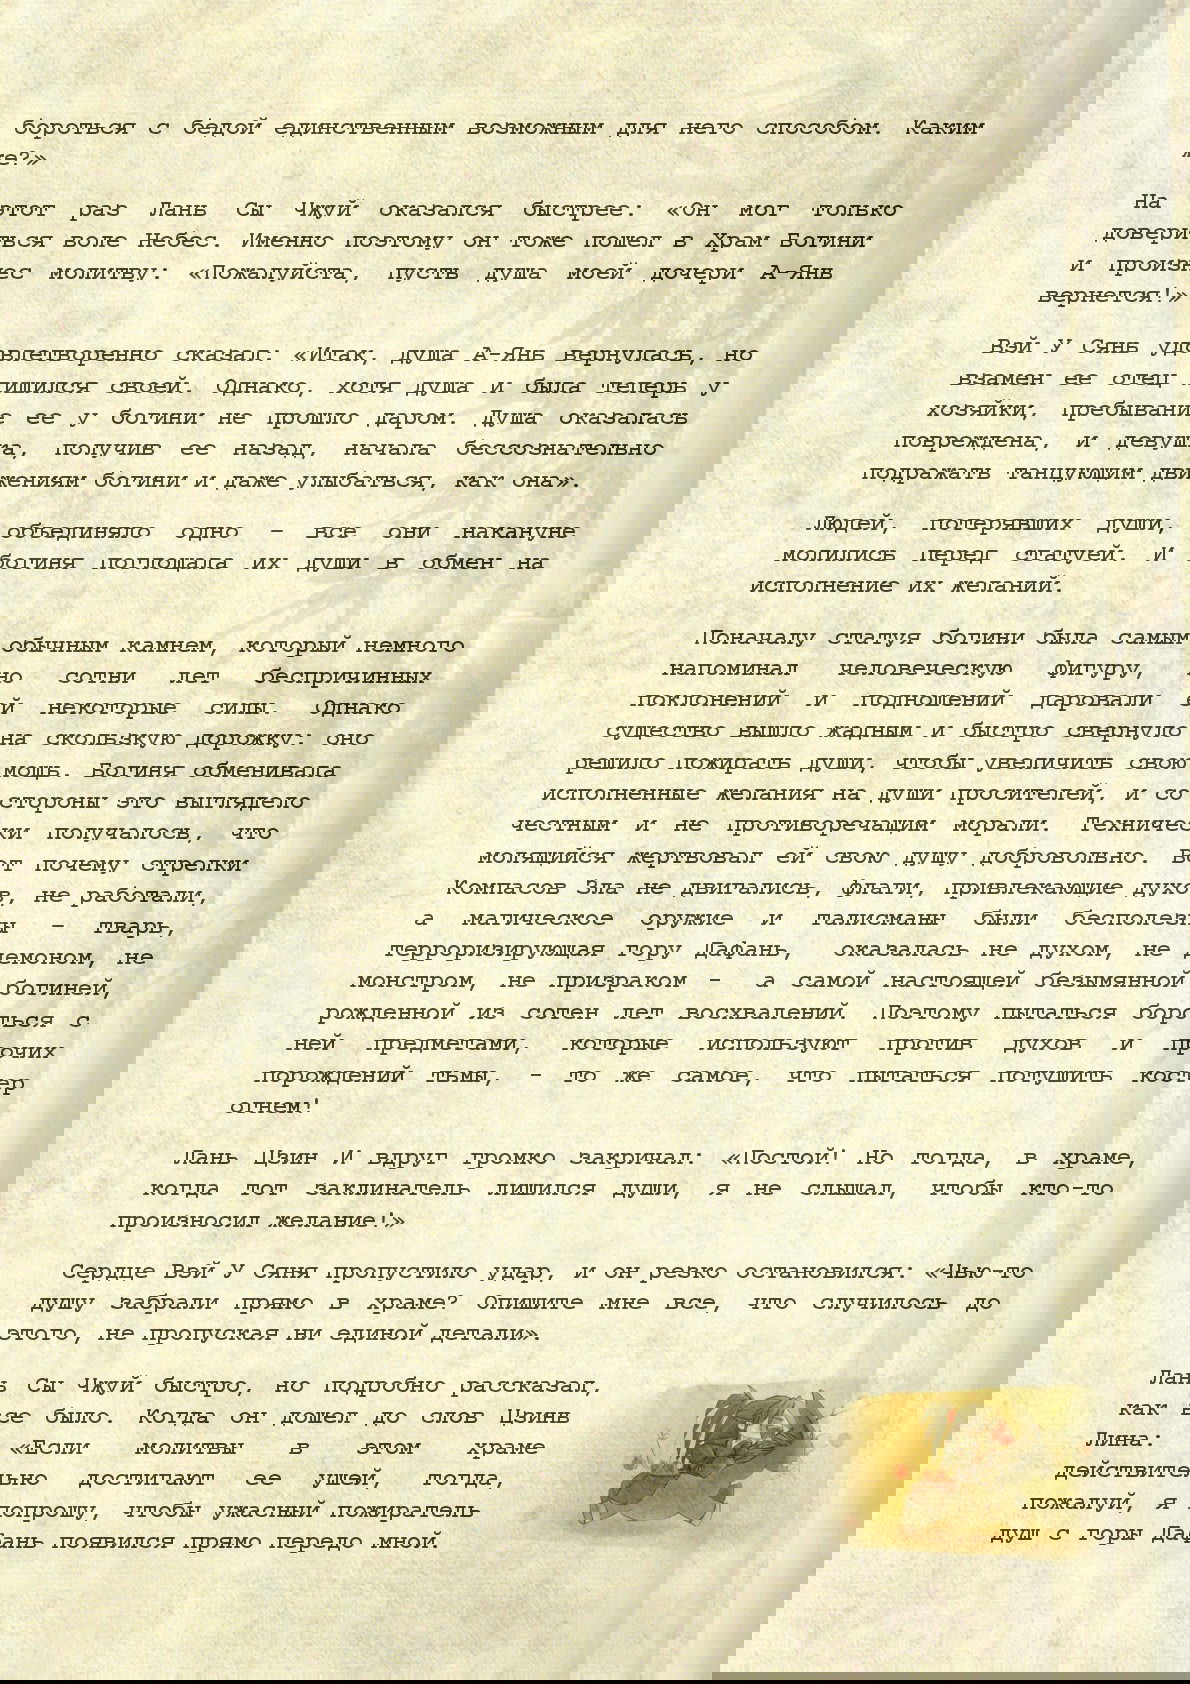 бороться с бедой единственным возможным для него способом. Каким
же?»
На этот раз Лань Сы Чжуй оказался быстрее: «Он мог только
довериться воле Небес. Именно поэтому он тоже пошел в Храм Богини
и произнес молитву: «Пожалуйста, пусть душа моей дочери А-Янь
вернется!»
Вэй У Сянь удовлетворенно сказал: «Итак, душа А-Янь вернулась, но
взамен ее отец лишился своей. Однако, хотя душа и была теперь у
хозяйки, пребывание ее у богини не прошло даром. Душа оказалась
повреждена, и девушка, получив ее назад, начала бессознательно
подражать танцующим движениям богини и даже улыбаться, как она».
Людей, потерявших души, объединяло одно – все они накануне
молились перед статуей. И богиня поглощала их души в обмен на
исполнение их желаний.
Поначалу статуя богини была самым обычным камнем, который немного
напоминал человеческую фигуру, но сотни лет беспричинных
поклонений и подношений даровали ей некоторые силы. Однако
существо вышло жадным и быстро свернуло на скользкую дорожку: оно
решило пожирать души, чтобы увеличить свою мощь. Богиня обменивала
исполненные желания на души просителей, и со стороны это выглядело
честным и не противоречащим морали. Технически получалось, что
молящийся жертвовал ей свою душу добровольно. Вот почему стрелки
Компасов Зла не двигались, флаги, привлекающие духов, не работали,
а магическое оружие и талисманы были бесполезны – тварь,
терроризирующая гору Дафань, оказалась не духом, не демоном, не
монстром, не призраком – а самой настоящей безымянной богиней,
рожденной из сотен лет восхвалений. Поэтому пытаться бороться с
ней предметами, которые используют против духов и прочих
порождений тьмы, – то же самое, что пытаться потушить костер
огнем!
Лань Цзин И вдруг громко закричал: «Постой! Но тогда, в храме,
когда тот заклинатель лишился души, я не слышал, чтобы кто-то
произносил желание!»
Сердце Вэй У Сяня пропустило удар, и он резко остановился: «Чью-то
душу забрали прямо в храме? Опишите мне все, что случилось до
этого, не пропуская ни единой детали».
Лань Сы Чжуй быстро, но подробно рассказал,
как все было. Когда он дошел до слов Цзинь
Лина: «Если молитвы в этом храме
действительно достигают ее ушей, тогда,
пожалуй, я попрошу, чтобы ужасный пожиратель
душ с горы Дафань появился прямо передо мной.